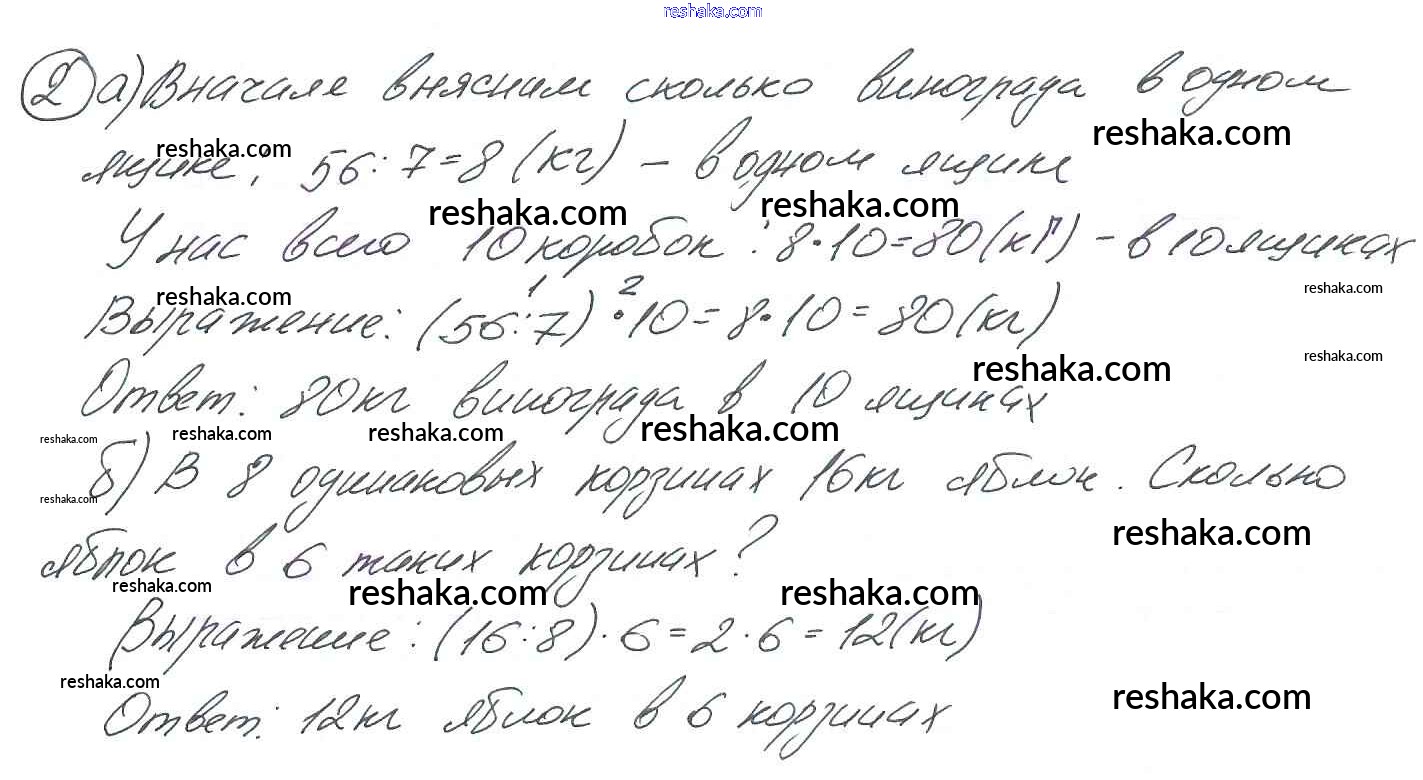 reshaka.com
2 а) Вначале внясним сколько винограда в одном
reshaka.com reshaka.com
ящике; 56:7=8 (кг) – в одном ящике
reshaka.com reshaka.com
У нас всего 10 коробок: 8·10=80(кг) – в 10 ящиках
reshaka.com reshaka.com
1 2
Выражение: (56:7)·10=8·10=80(кг)
reshaka.com reshaka.com
Ответ: 80кг винограда в 10 ящиках
reshaka.com reshaka.com reshaka.com reshaka.com
б) В 8 одинаковых корзинах 16кг яблок. Сколько
reshaka.com reshaka.com
яблок в 6 таких корзинах?
reshaka.com reshaka.com reshaka.com
Выражение: (16:8)·6=2·6=12(кг)
reshaka.com reshaka.com
Ответ: 12кг яблок в 6 корзинах